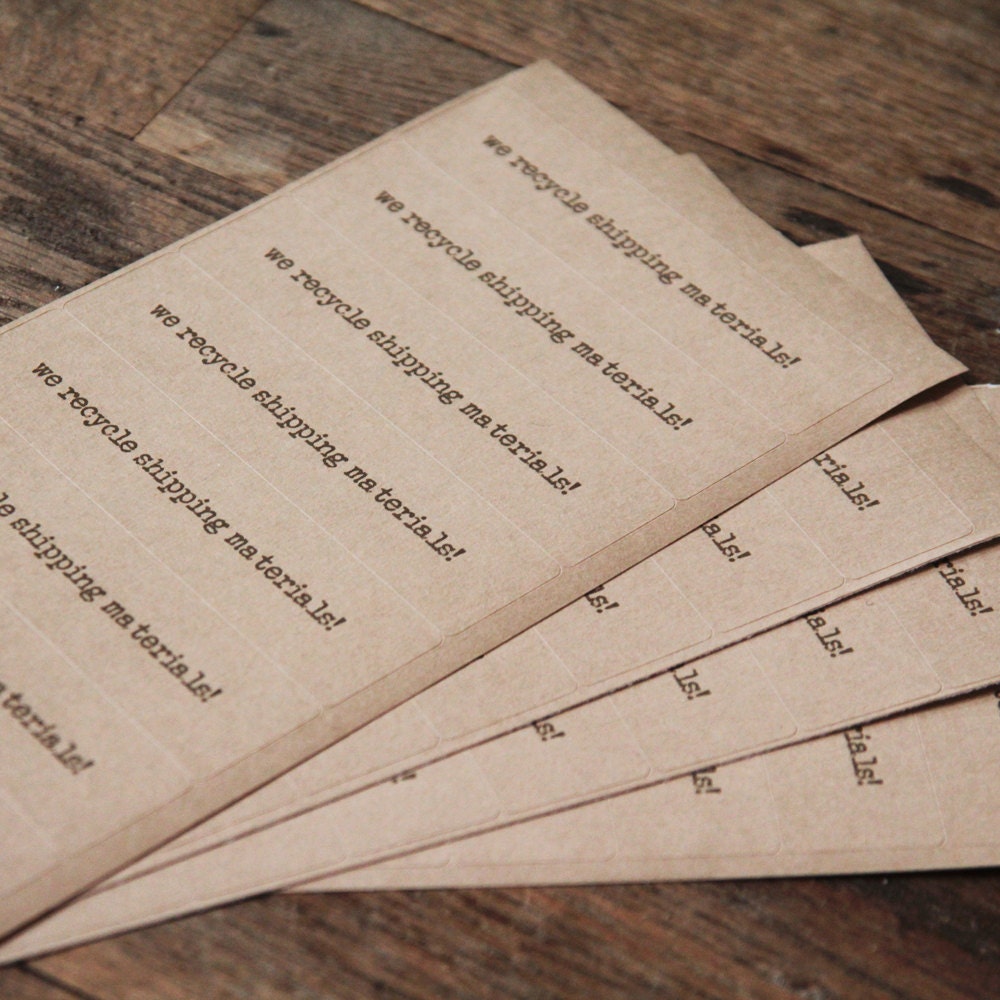 we recycle shipping materials!
we recycle shipping materials!
we recycle shipping materials!
we recycle shipping materials!
we recycle shipping materials!
shipping materials!
materials!